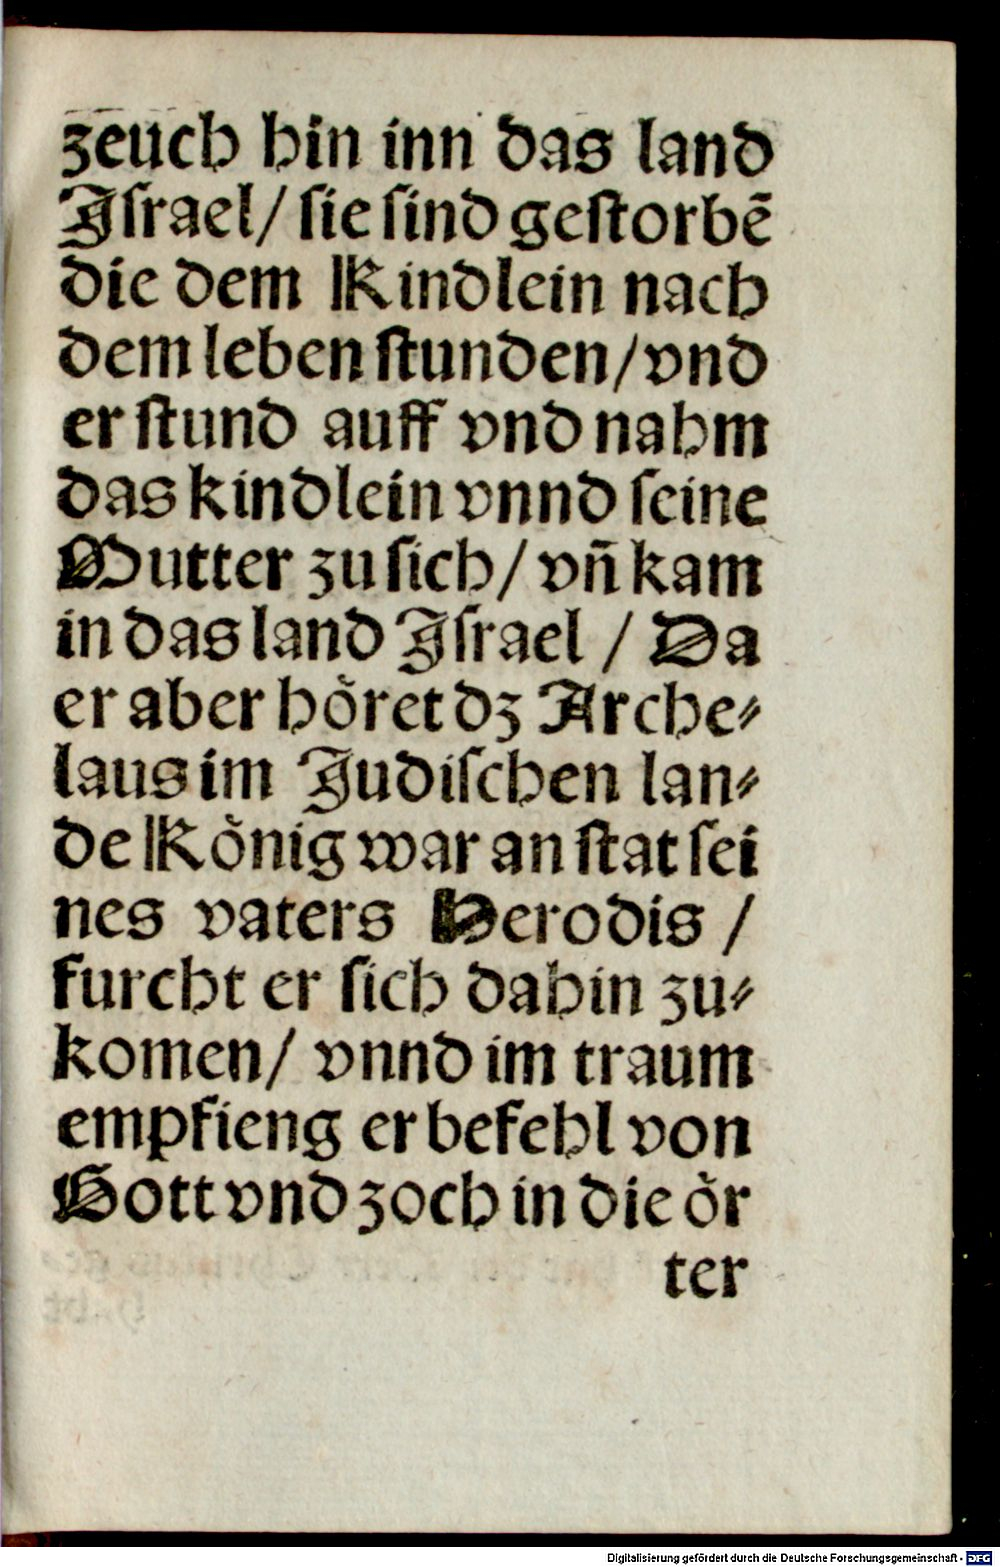 zeuch hin inn das land
Jſrael/ ſie ſind geſtorbẽ
die dem Kindlein nach
dem leben ſtunden/ vnd
er ſtund auff vnd nahm
das kindlein vnnd ſeine
Mutter zu ſich/ vñ kam
in das land Jſrael / Da
er aber hoͤret dz Arche⸗
laus im Judiſchen lan⸗
de Koͤnig war an ſtat ſei
nes vaters Herodis /
furcht er ſich dahin zu⸗
komen/ vnnd im traum
empfieng er befehl von
Gott vnd zoch in die oͤr
ter
Digitalisierung gefördert durch die Deutsche Forschungsgemeinschaft - DFG